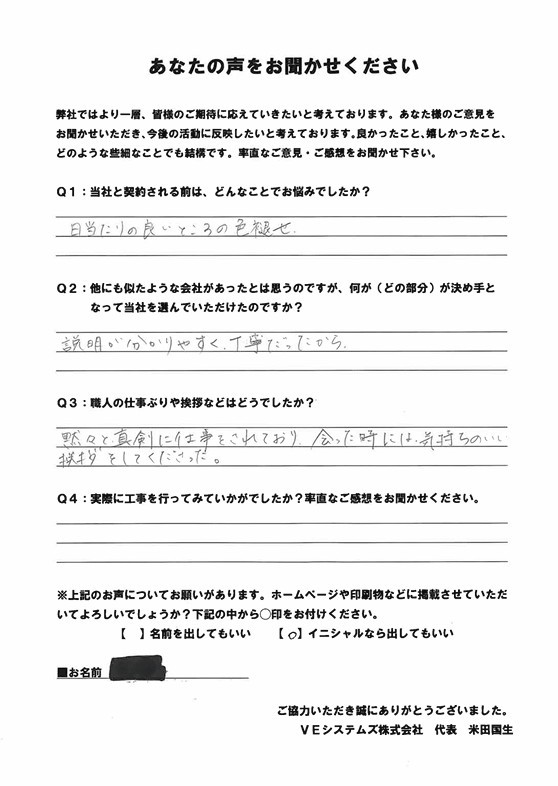 あなたの声をお聞かせください
弊社ではより一層、皆様のご期待に応えていきたいと考えております。あなた様のご意見を
お聞かせいただき、今後の活動に反映したいと考えております。良かったこと、嬉しかったこと、
どのような些細なことでも結構です。率直なご意見・ご感想をお聞かせ下さい。
Q1：当社と契約される前は、どんなことでお悩みでしたか？
日当たりの良いところの色褪せ.
Q2：他にも似たような会社があったとは思うのですが、何が（どの部分）が決め手と
なって当社を選んでいただけたのですか？
説明が分かりやすく、丁寧だったから.
Q3：職人の仕事ぶりや挨拶などはどうでしたか？
黙々と真剣に仕事をされており、会った時には、気持ちのいい
挨拶をしてくださった。
Q4：実際に工事を行ってみていかがでしたか？率直なご感想をお聞かせください。
※上記のお声についてお願いがあります。ホームページや印刷物などに掲載させていただ
いてよろしいでしょうか？下記の中から○印をお付けください。
【　】名前を出してもいい　【○】イニシャルなら出してもいい
■お名前
ご協力いただき誠にありがとうございました。
VEシステムズ株式会社　代表　米田国生